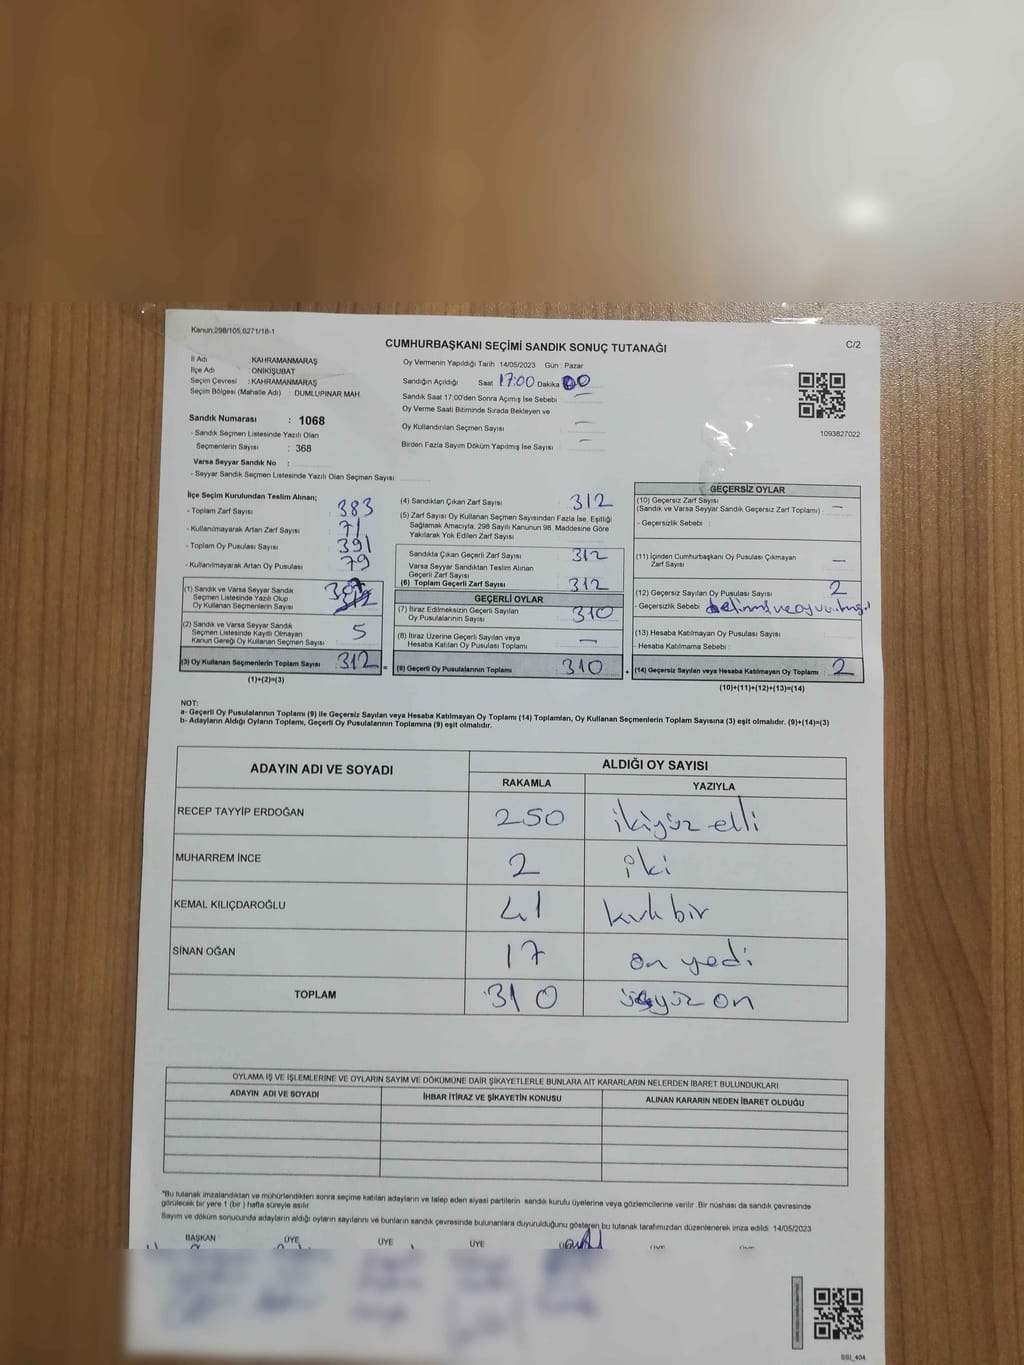 Kanun,298/105,6271/18-1
CUMHURBAŞKANI SEÇİMİ SANDIK SONUÇ TUTANAĞI
C/2
İl Adı : KAHRAMANMARAŞ
İlçe Adı : ONİKİŞUBAT
Seçim Çevresi : KAHRAMANMARAŞ
Seçim Bölgesi (Mahalle Adı) : DUMLUPINAR MAH.
Sandık Numarası : 1068
- Sandık Seçmen Listesinde Yazılı Olan
Seçmenlerin Sayısı : 368
Varsa Seyyar Sandık No :
- Seyyar Sandık Seçmen Listesinde Yazılı Olan Seçmen Sayısı
Oy Vermenin Yapıldığı Tarih 14/05/2023 Gün : Pazar
Sandığın Açıldığı Saat 17:00 Dakika 00
Sandık Saat 17.00'den Sonra Açımış İse Sebebi
Oy Verme Saati Bitiminde Sırada Bekleyen ve
Oy Kullandırılan Seçmen Sayısı —
Birden Fazla Sayım Döküm Yapılmış İse Sayısı —
1093827022
İlçe Seçim Kurulundan Teslim Alınan;
- Toplam Zarf Sayısı 383
- Kullanılmayarak Artan Zarf Sayısı 71
- Toplam Oy Pusulası Sayısı 391
- Kullanılmayarak Artan Oy Pusulası 79
(1) Sandık ve Varsa Seyyar Sandık
Seçmen Listesinde Yazılı Olup
Oy Kullanan Seçmenlerin Sayısı
(2) Sandık ve Varsa Seyyar Sandık
Seçmen Listesinde Kayıtlı Olmayan
Kanun Gereği Oy Kullanan Seçmen Sayısı 5
(3) Oy Kullanan Seçmenlerin Toplam Sayısı 312 =
(1)+(2)=(3)
(4) Sandıktan Çıkan Zarf Sayısı 312
(5) Zarf Sayısı Oy Kullanan Seçmen Sayısından Fazla İse, Eşitliği
Sağlamak Amacıyla, 298 Sayılı Kanunun 98. Maddesine Göre
Yakılarak Yok Edilen Zarf Sayısı
Sandıkta Çıkan Geçerli Zarf Sayısı 312
Varsa Seyyar Sandıktan Teslim Alınan
Geçerli Zarf Sayısı
(6) Toplam Geçerli Zarf Sayısı 312
GEÇERLİ OYLAR
(7) İtiraz Edilmeksizin Geçerli Sayılan
Oy Pusulalarının Sayısı 310
(8) İtiraz Üzerine Geçerli Sayılan veya
Hesaba Katılan Oy Pusulaları Toplamı —
(9) Geçerli Oy Pusulalarının Toplamı 310 +
GEÇERSİZ OYLAR
(10) Geçersiz Zarf Sayısı
(Sandık ve Varsa Seyyar Sandık Geçersiz Zarf Toplamı) —
- Geçersizlik Sebebi :
(11) İçinden Cumhurbaşkanı Oy Pusulası Çıkmayan
Zarf Sayısı —
(12) Geçersiz Sayılan Oy Pusulası Sayısı 2
- Geçersizlik Sebebi
(13) Hesaba Katılmayan Oy Pusulası Sayısı
- Hesaba Katılmama Sebebi :
(14) Geçersiz Sayılan veya Hesaba Katılmayan Oy Toplamı 2
(10)+(11)+(12)+(13)=(14)
NOT:
a- Geçerli Oy Pusulalarının Toplamı (9) ile Geçersiz Sayılan veya Hesaba Katılmayan Oy Toplamı (14) Toplamları, Oy Kullanan Seçmenlerin Toplam Sayısına (3) eşit olmalıdır. (9)+(14)=(3)
b- Adayların Aldığı Oyların Toplamı, Geçerli Oy Pusulalarının Toplamına (9) eşit olmalıdır.
ADAYIN ADI VE SOYADI
ALDIĞI OY SAYISI
RAKAMLA YAZIYLA
RECEP TAYYİP ERDOĞAN 250 ikiyüz elli
MUHARREM İNCE 2 iki
KEMAL KILIÇDAROĞLU 41 kırk bir
SİNAN OĞAN 17 on yedi
TOPLAM 310 üçyüz on
OYLAMA İŞ VE İŞLEMLERİNE VE OYLARIN SAYIM VE DÖKÜMÜNE DAİR ŞİKAYETLERLE BUNLARA AİT KARARLARIN NELERDEN İBARET BULUNDUKLARI
ADAYIN ADI VE SOYADI İHBAR İTİRAZ VE ŞİKAYETİN KONUSU ALINAN KARARIN NEDEN İBARET OLDUĞU
*Bu tutanak imzalandıktan ve mühürlendikten sonra seçime katılan adayların ve talep eden siyasi partilerin sandık kurulu üyelerine veya gözlemcilerine verilir. Bir nüshası da sandık çevresinde
görülecek bir yere 1 (bir ) hafta süreyle asılır
Sayım ve döküm sonucunda adayların aldığı oyların sayılarını ve bunların sandık çevresinde bulunanlara duyurulduğunu gösteren bu tutanak tarafımızdan düzenlenerek imza edildi. 14/05/2023
BAŞKAN ÜYE ÜYE ÜYE
SSI_404